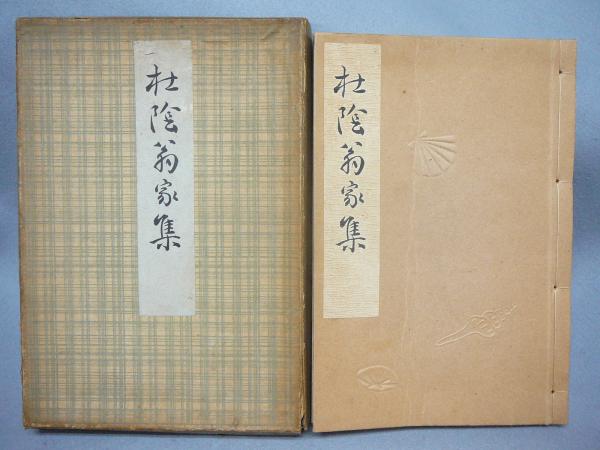 杜陰翁家集
杜陰翁家集